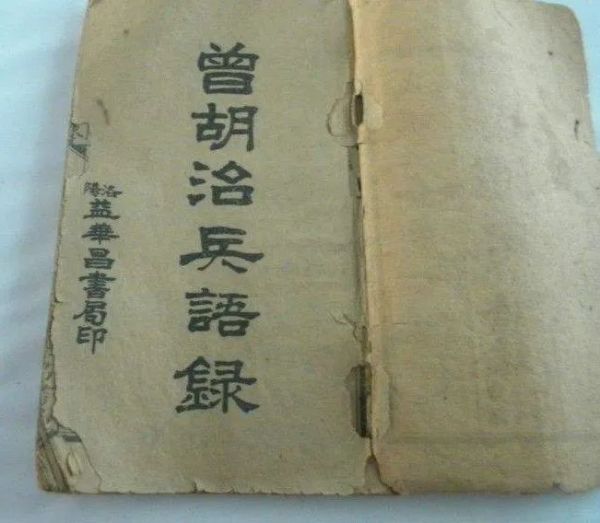 曾胡治兵語录
洛陽
益華昌書局印